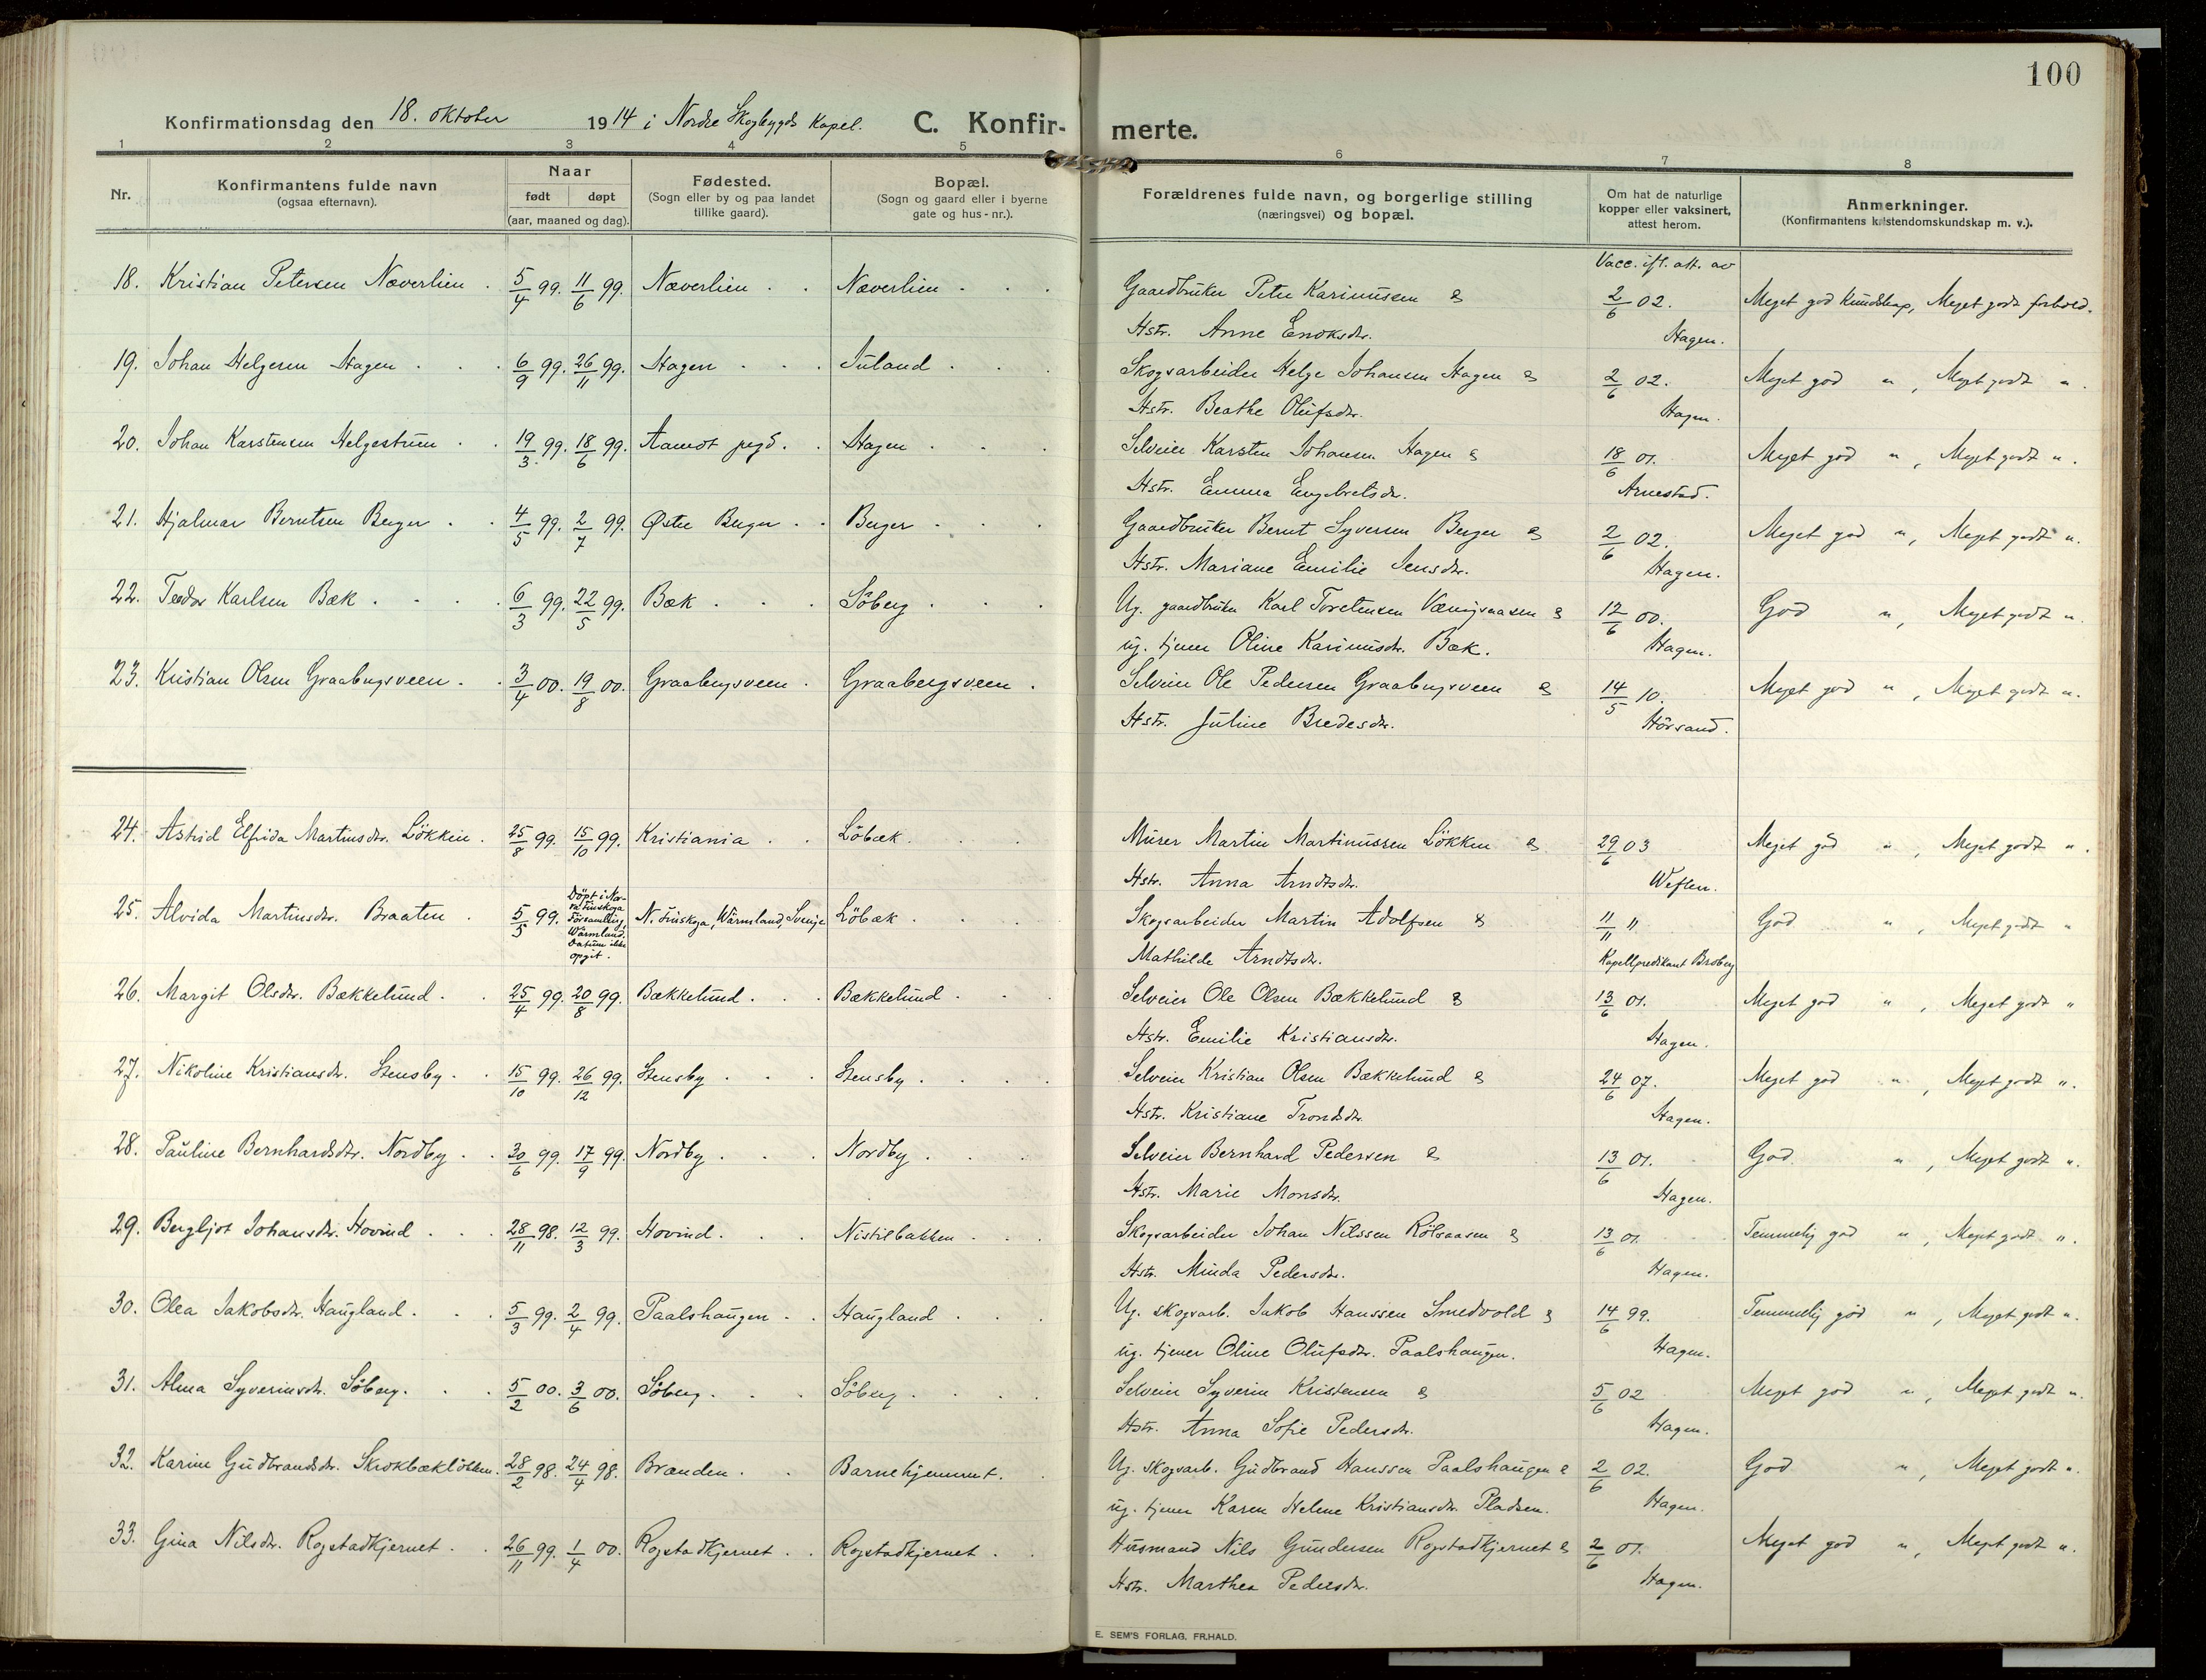 100
Konfirmationsdag den 18. oktober 1914 i Nordre Skogbygds Kapel. C. Konfir- merte.
1 2 3 4 5 6 7 8
Nr. Konfirmantens fulde navn (ogsaa efternavn). Naar født døpt (aar, maaned og dag). Fødested. (Sogn eller by og paa landet tillike gaard). Bopæl. (Sogn og gaard eller i byerne gate og hus-nr.). Forældrenes fulde navn, og borgerlige stilling (næringsvei) og bopæl. Om hat de naturlige kopper eller vaksinert, attest herom. Anmerkninger. (Konfirmantens kristendomskundskap m. v.).
Vacc. ifl. att. av
18. Kristian Petersen Næverlien . 5/4 99. 11/6 99. Næverlien . . Næverlien . . . Gaardbruker Peter Karinussen & 2/6 02. Meget god kundskap, Meget godt forhold.
Hstr. Anne Enoksdr. Hagen.
19. Johan Helgesen Hagen . . . 6/9 99. 26/11 99. Hagen . . . Juland . . . Skogsarbeider Helge Johansen Hagen & 2/6 02. Meget god ", Meget godt ".
Hstr. Beathe Olufsdr. Hagen.
20. Johan Karstensen Helgestrum . . 19/3 99. 18/6 99. Aamot pgd. . Hagen . . . Selveier Karsten Johansen Hagen & 18/6 01. Meget god ", Meget godt ".
Hstr. Emma Engebretsdr. Arnestad.
21. Hjalmar Berntsen Berger . . 4/5 99. 2/7 99. Østre Berger . . Berger . . . Gaardbruker Bernt Syversen Berger & 2/6 02. Meget god ", Meget godt ".
Hstr. Mariane Emilie Jensdr. Hagen.
22. Teodor Karlsen Bæk . . . . 6/3 99. 22/5 99. Bæk . . . Söberg . . . Ug. gaardbruker Karl Torstensen & 12/6 00. God ", Meget godt ".
ug. tjener Oline Karinusdr. Bæk. Hagen.
23. Kristian Olsen Graabergsveen . . 3/4 00. 19/8 00. Graabergsveen . Graabergsveen . Selveier Ole Pedersen Graabergsveen & 14/5 10. Meget god ", Meget godt ".
Hstr. Juline Bredesdr. Hörsand.
24. Astrid Elfrida Martinsdr. Lökken . 25/8 99. 15/10 99. Kristiania . . Löbæk . . . Murer Martin Martinussen Lökken & 29/6 03 Meget god ", Meget godt ".
Hstr. Anna Arndtsdr. Weflen.
25. Alvida Martinsdr. Braaten . 5/5 99. Döpt i Nor-ra Finskoga Församling, Wärmland. Datum ikke opgit. N. Finskoga, Wärmland, Sverige Löbæk . . . Skogsarbeider Martin Adolfsen & 11/11 11 God ", Meget godt "
Mathilde Arndtsdr. Kapellpredikant Broberg
26. Margit Olsdr. Bækkelund . . 25/4 99. 20/8 99. Bækkelund . . . Bækkelund . . . Selveier Ole Olsen Bækkelund & 13/6 01. Meget god ", Meget godt "
Hstr. Emilie Kristiansdr. Hagen.
27. Nikoline Kristiansdr. Stensby . . 15/10 99. 26/12 99. Stensby . . . Stensby . . . . Selveier Kristian Olsen Bækkelund & 24/6 07. Meget god ", Meget godt ".
Hstr. Kristiane Trondsdr. Hagen.
28. Pauline Bernhardsdr. Nordby . . 30/6 99. 17/9 99. Nordby . . . Nordby . . . . Selveier Bernhard Pedersen & 13/6 01. God ", Meget godt ".
Hstr. Marie Monsdr. Hagen.
29. Bergljot Johansdr. Hovind . . . 28/11 98. 12/3 99. Hovind . . . Nistilbakken . . . Skogsarbeider Johan Nilssen Rölsaasen & 13/6 01. Temmelig god ", Meget godt ".
Hstr. Minda Pedersdr. Hagen.
30. Olea Jakobsdr. Haugland . . . 5/3 99. 2/4 99. Paalshaugen . . Haugland . . . Ug. skogsarb. Jakob Hanssen Smedvold & 14/6 99. Temmelig god ", Meget godt ".
ug. tjener Oline Olufsdr. Paalshaugen. Hagen.
31. Alma Syverinsdr. Söberg. . . 5/2 00. 3/6 00. Söberg. . . Söberg . . . . Selveier Syverin Kristensen & 5/6 02 Meget god ", Meget godt ".
Hstr. Anna Sofie Pedersdr. Hagen.
32. Karine Gudbrandsdr. Skrokbæklökken. 28/2 98. 24/4 98. Branden . . Barnehjemmet. . Ug. skogsarb. Gudbrand Hanssen Paalshaugen & 2/6 02. God ", Meget godt ".
ug. tjener Karen Helene Kristiansdr. Pladsen. Hagen.
33. Gina Nilsdr. Rogstadkjernet . . 26/11 99. 1/4 00. Rogstadkjernet . . Rogstadkjernet . . Husmand Nils Gundersen Rogstadkjernet & 2/6 01. Meget god ", Meget godt ".
Hstr. Marthea Pedersdr. Hagen.
E. SEM'S FORLAG, FR.HALD.